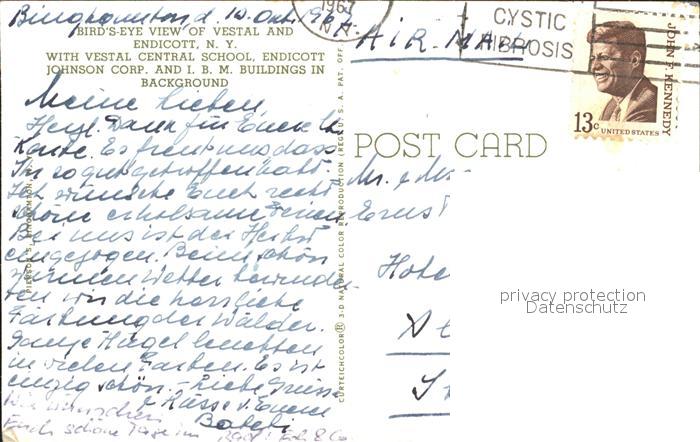 Binghamton d. 10. Okt. 1967
BIRD'S-EYE VIEW OF VESTAL AND
ENDICOTT, N. Y.
WITH VESTAL CENTRAL SCHOOL, ENDICOTT
JOHNSON CORP. AND I. B. M. BUILDINGS IN
BACKGROUND
Meine Lieben
Herzl. Dank für Eure lb.
Karte. Es freut uns dass
Ihr so gut getroffen habt.
Ich wünsche Euch recht
schöne erholsame Ferien
Bei uns ist der Herbst
eingezogen. Beim schön
warmen Wetter bewunder
ten wir die herrliche
Färbung der Wälder.
Ganze Hügel leuchten
in vielen Farben. Es ist
einzig schön. – Liebe Grüsse
& Küsse v. Eurem
Wir wünschen
Euch schöne Tage im
CURTEICHCOLOR® 3-D NATURAL COLOR REPRODUCTION (REG. U. S. A. PAT. OFF.
1967
CYSTIC
FIBROSIS
AIR MAIL
JOHN F. KENNEDY
13c UNITED STATES
POST CARD
Mr. & Mrs
Ernst
Hote
privacy protection
Datenschutz